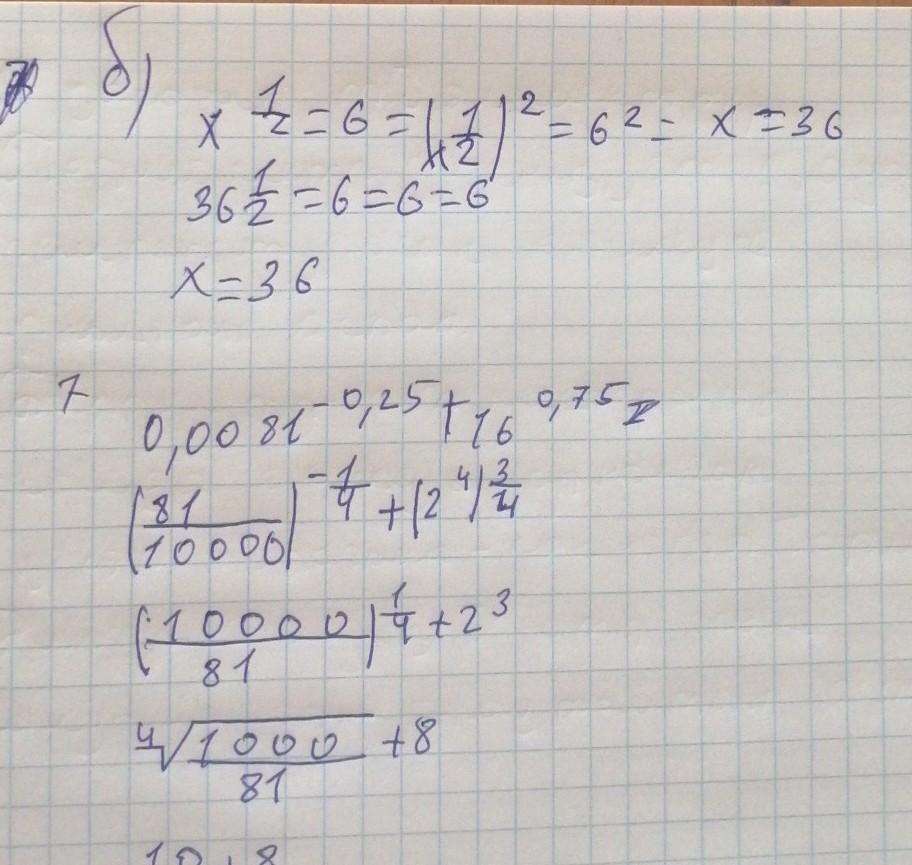 б)
x^{1/2} = 6 = (x^{1/2})^2 = 6^2 = x = 36
36^{1/2} = 6 = 6 = 6
x = 36
7
0,0081^{-0,25} + 16^{0,75} =
(81/10000)^{-1/4} + (2^4)^{3/4}
(10000/81)^{1/4} + 2^3
∜(1000/81) + 8
10 + 8